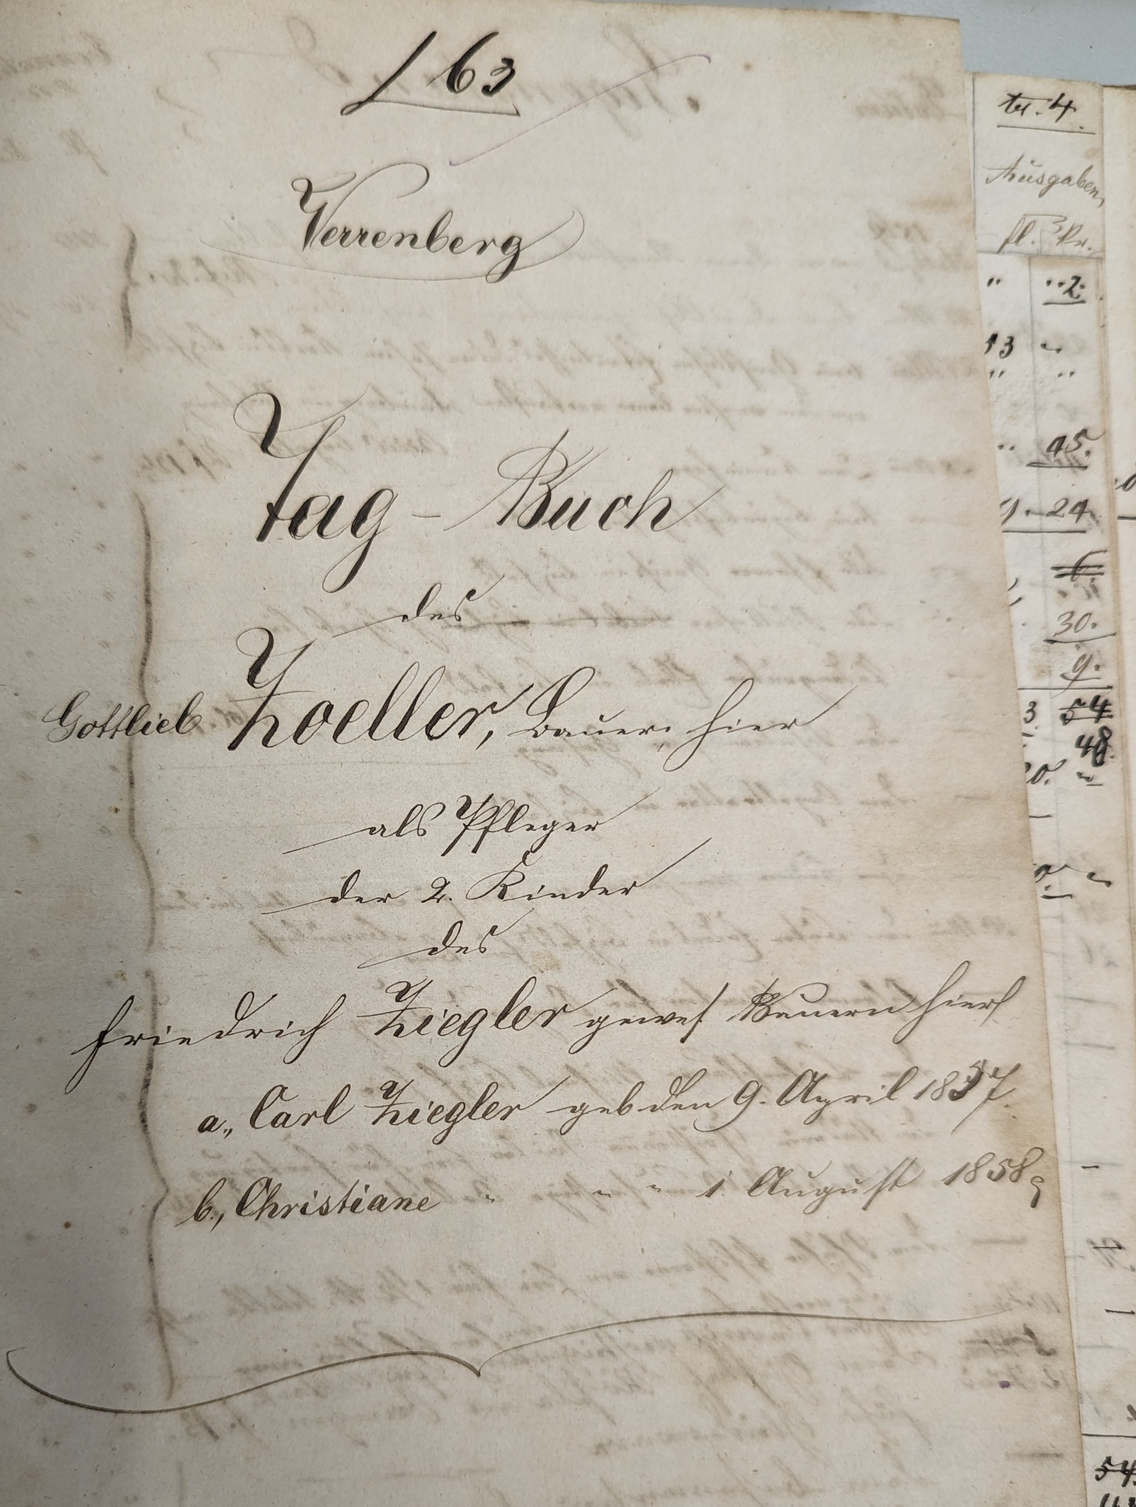 L 63
Verrenberg
Tag-Buch
des
Gottlieb Zoeller, Bauer, hier
als Pfleger
der 2. Kinder
des
Friedrich Ziegler gewes. Bauern hier
a., Carl Ziegler geb den 9. April 1837
b., Christiane " " " 1. August 1858
Ausgaben,
fl. Kr.
" "2.
13 "
" "
" 45.
24
6.
30.
9.
3 54
48.